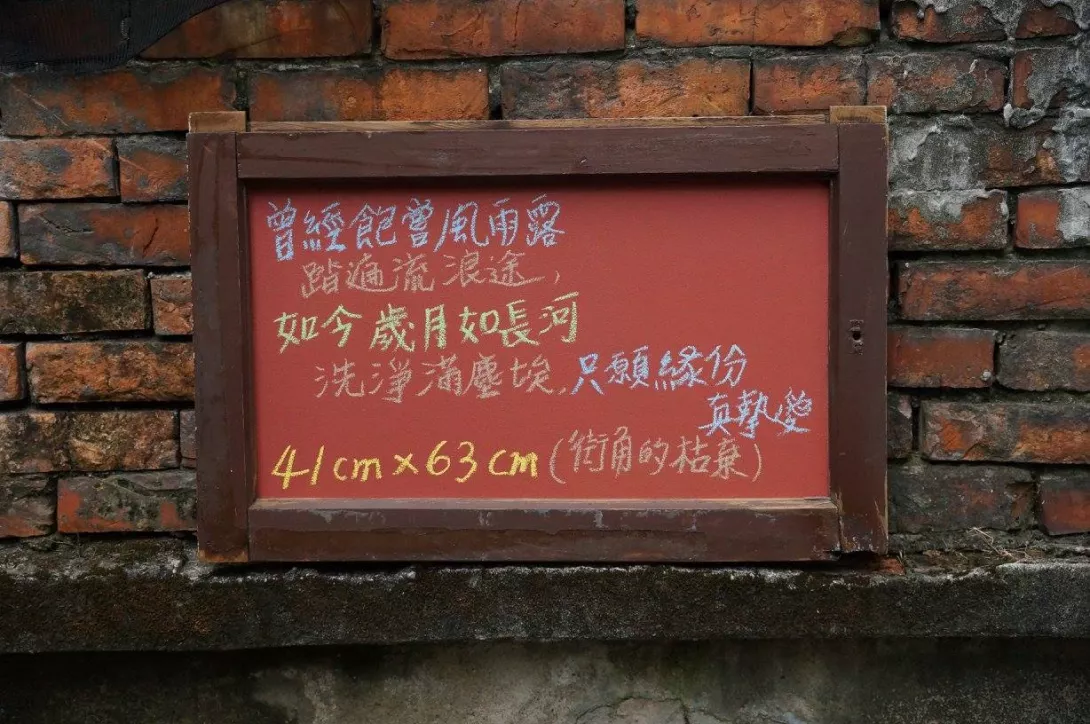 曾經飽嘗風雨露
踏遍流浪途,
如今歲月如長河
洗淨滿塵埃,只願緣份
真摯愛
41cm×63cm(街角的枯棄)